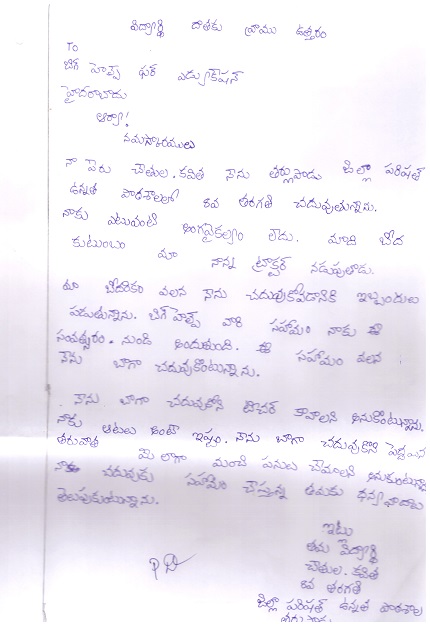 విద్యార్థి దాతకు వ్రాయు ఉత్తరం
To
బిగ్ హెల్ప్ ఫర్ ఎడ్యుకేషన్
హైదరాబాదు
ఆర్యా!
నమస్కారములు
నా పేరు చౌతుల.కవిత నేను తర్లుపాడు జిల్లా పరిషత్
ఉన్నత పాఠశాలలో 8వ తరగతి చదువుతున్నాను.
నాకు ఎటువంటి అంగవైకల్యం లేదు. మాది బీద
కుటుంబం మా నాన్న ట్రాక్టర్ నడుపుతాడు.
మా బీదరికం వలన నేను చదువుకోవడానికి ఇబ్బందులు
పడుతున్నాను. బిగ్ హెల్ప్ వారి సహాయం నాకు ఈ
సంవత్సరం. నుండి అందుతుంది. ఈ సహాయం వలన
నేను బాగా చదువుకొంటున్నాను.
. నేను బాగా చదువుకొని టీచర్ కావాలని అనుకొంటున్నాను.
నాకు ఆటలు అంటే ఇష్టం. నేను బాగా చదువుకొని పెద్దయిన
తరువాత మీలాగా మంచి పనులు చేయాలని అనుకుంటున్నా
నాకు చదువుకు సహాయం చేస్తున్న తమకు ధన్యవాదాలు
తెలుపుకుంటున్నాను.
ఇట్లు
తమ విద్యార్థి
చౌతుల.కవిత
8వ తరగతి
జిల్లా పరిషత్ ఉన్నత పాఠశాల